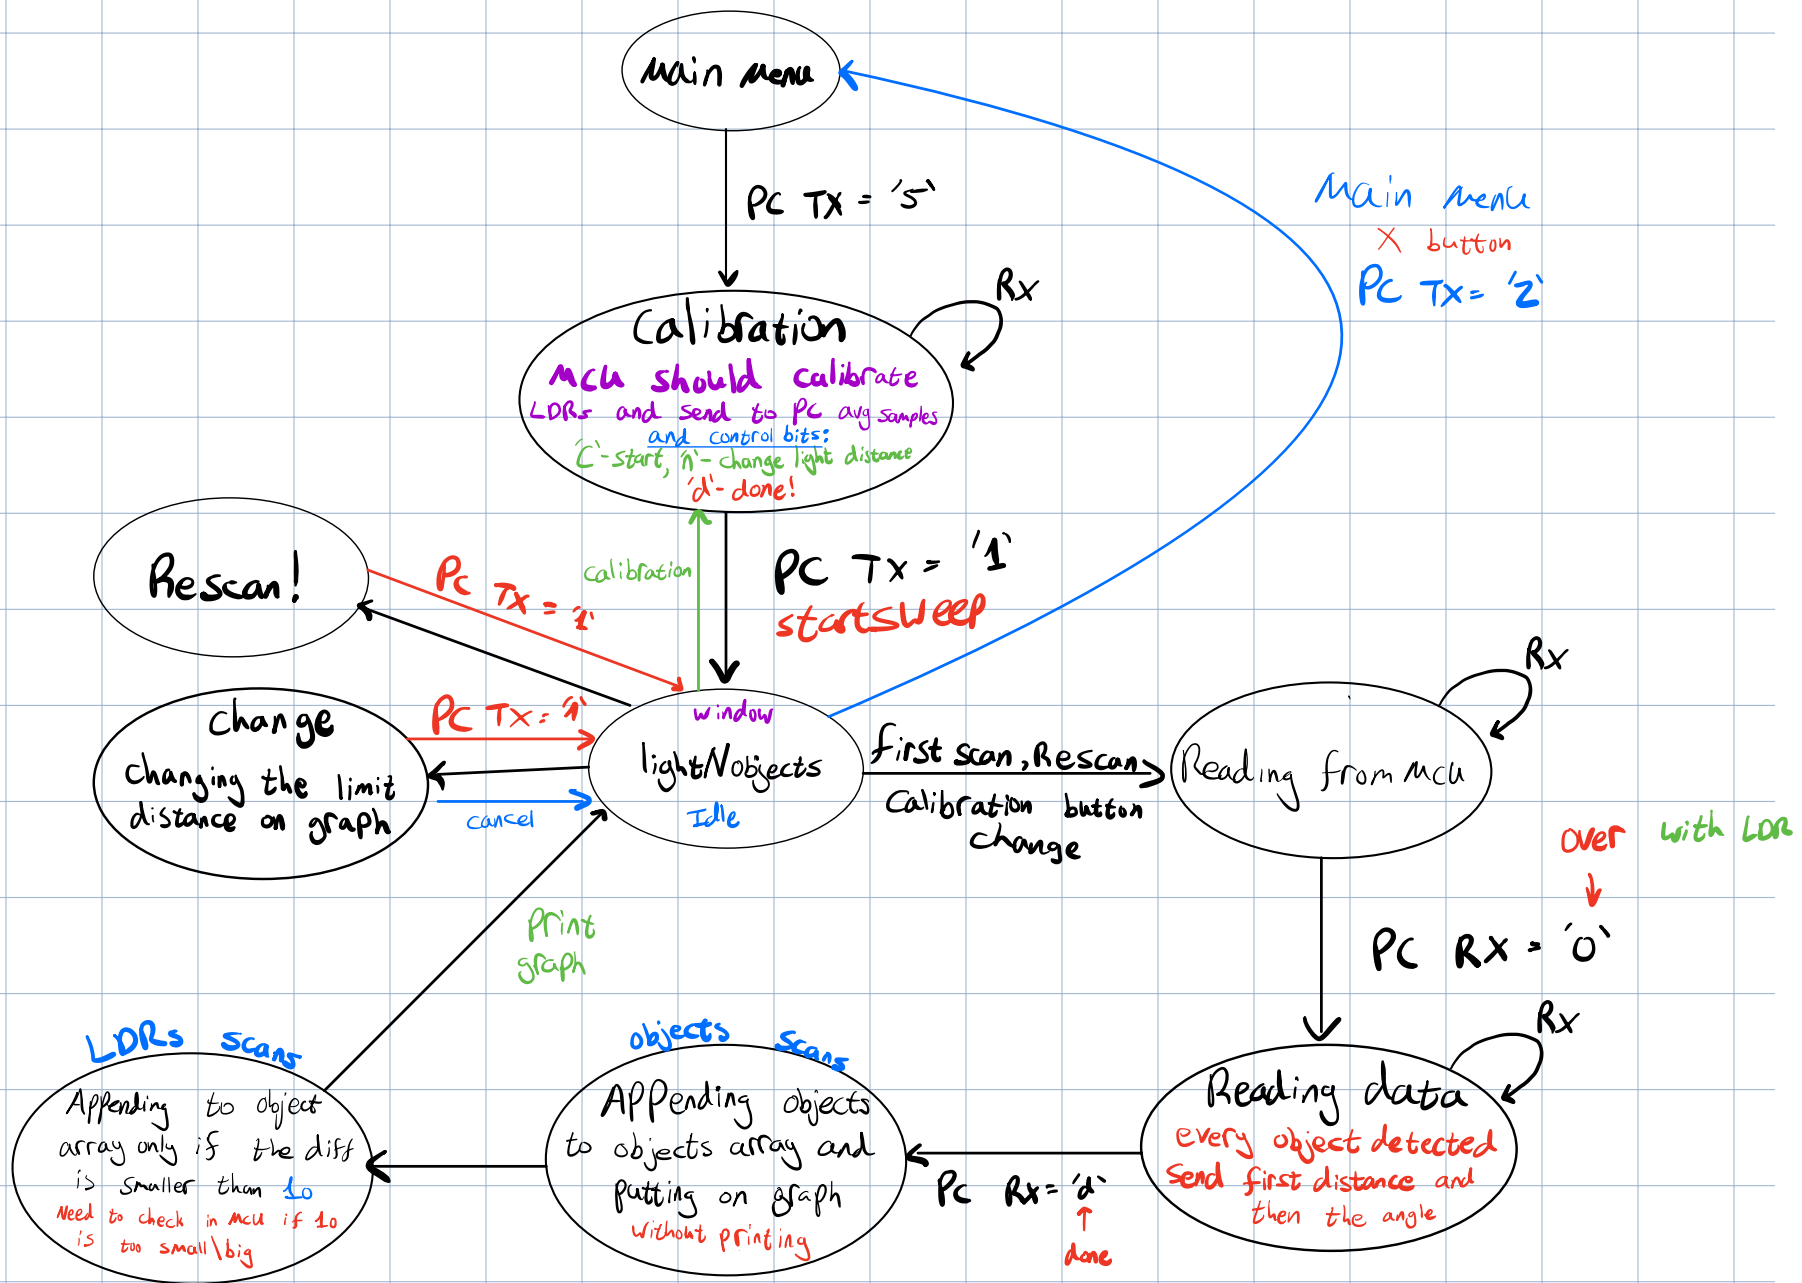 Main Menu
PC TX = '5'
Main menu
X button
PC TX = '2'
Rx
Calibration
MCU should calibrate
LDRs and send to PC avg samples
and control bits:
'C'-start, 'n'-change light distance
'd'-done!
Rescan!
PC TX = '1'
Calibration
PC TX = '1'
startsweep
Change
changing the limit
distance on graph
PC TX = '1'
cancel
window
lightNobjects
Idle
first scan, Rescan
Calibration button
change
Rx
Reading from MCU
over with LDR
PC RX = '0'
print
graph
LDRs scans
Appending to object
array only if the diff
is smaller than 10
Need to check in MCU if 10
is too small\big
objects scans
Appending objects
to objects array and
putting on graph
without printing
PC RX = 'd'
done
Rx
Reading data
every object detected
send first distance and
then the angle